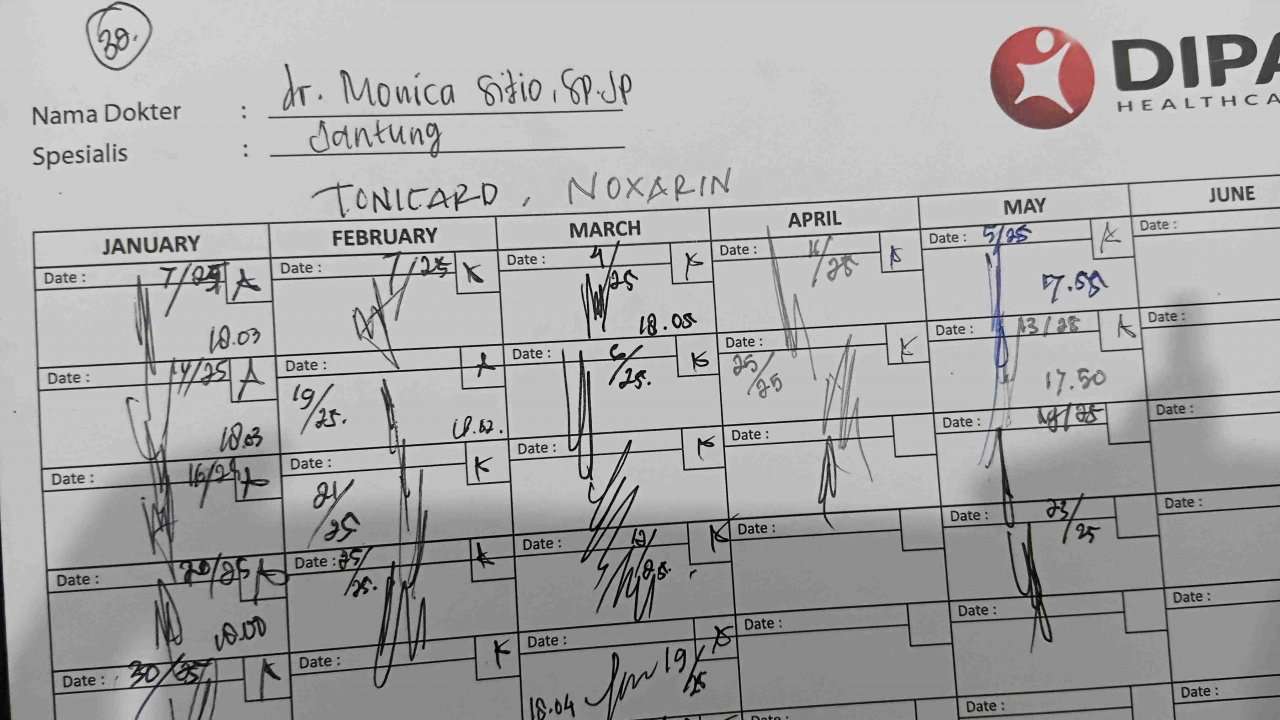 30.
DIPA
HEALTHCA
Nama Dokter : dr. Monica Sitio, Sp.JP
Spesialis : Jantung
TONICARD, NOXARIN
JANUARY FEBRUARY MARCH APRIL MAY JUNE
Date : 7/25 A Date : 7/25 K Date : 4/25 K Date : 16/25 A Date : 5/25 A Date :
18.03 18.05 17.55
Date : 14/25 A Date : 19/25. A Date : 6/25. K Date : 25/25 K Date : 13/25 A Date :
18.03 18.02. 17.50
Date : 16/25 A Date : 21/25 K K Date : 19/25 Date :
Date : 20/25 A Date : 25/25. K Date : 12/25. K Date : Date : 23/25
18.00
Date : 30/25 K Date : K Date : 19/25 K Date : Date : Date :
18.04
Date :